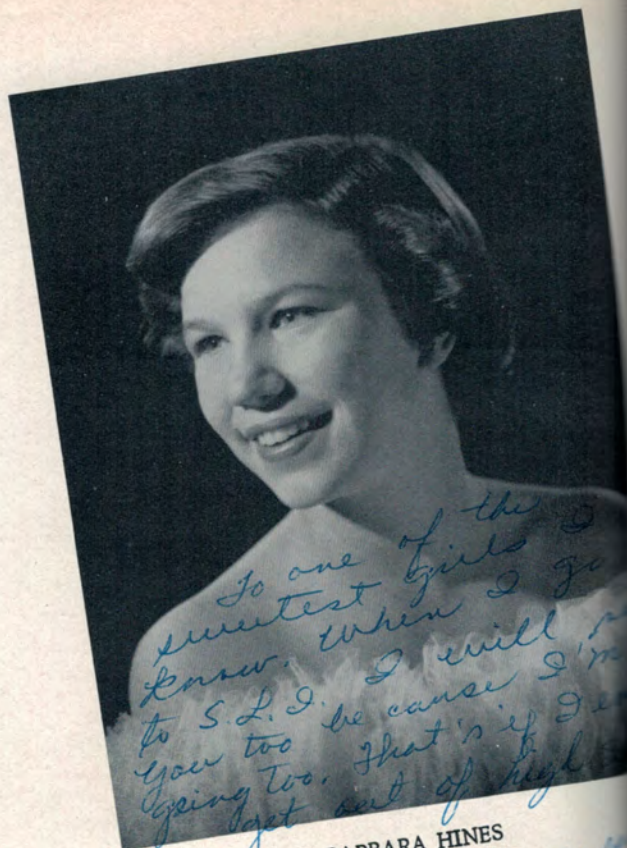 To one of the
sweetest girls I
know. When I go
to S.L.I. I will
you too be cause I'm
going too. That's if I
get out of high
BARBARA HINES